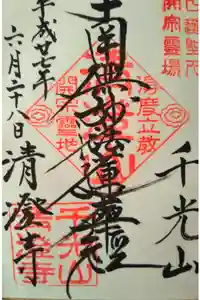 日蓮聖人
開宗霊場
千光山
南無妙法蓮華経
立教
開宗霊地
千光山
清澄寺
平成廿七年
六月二十八日
清澄寺